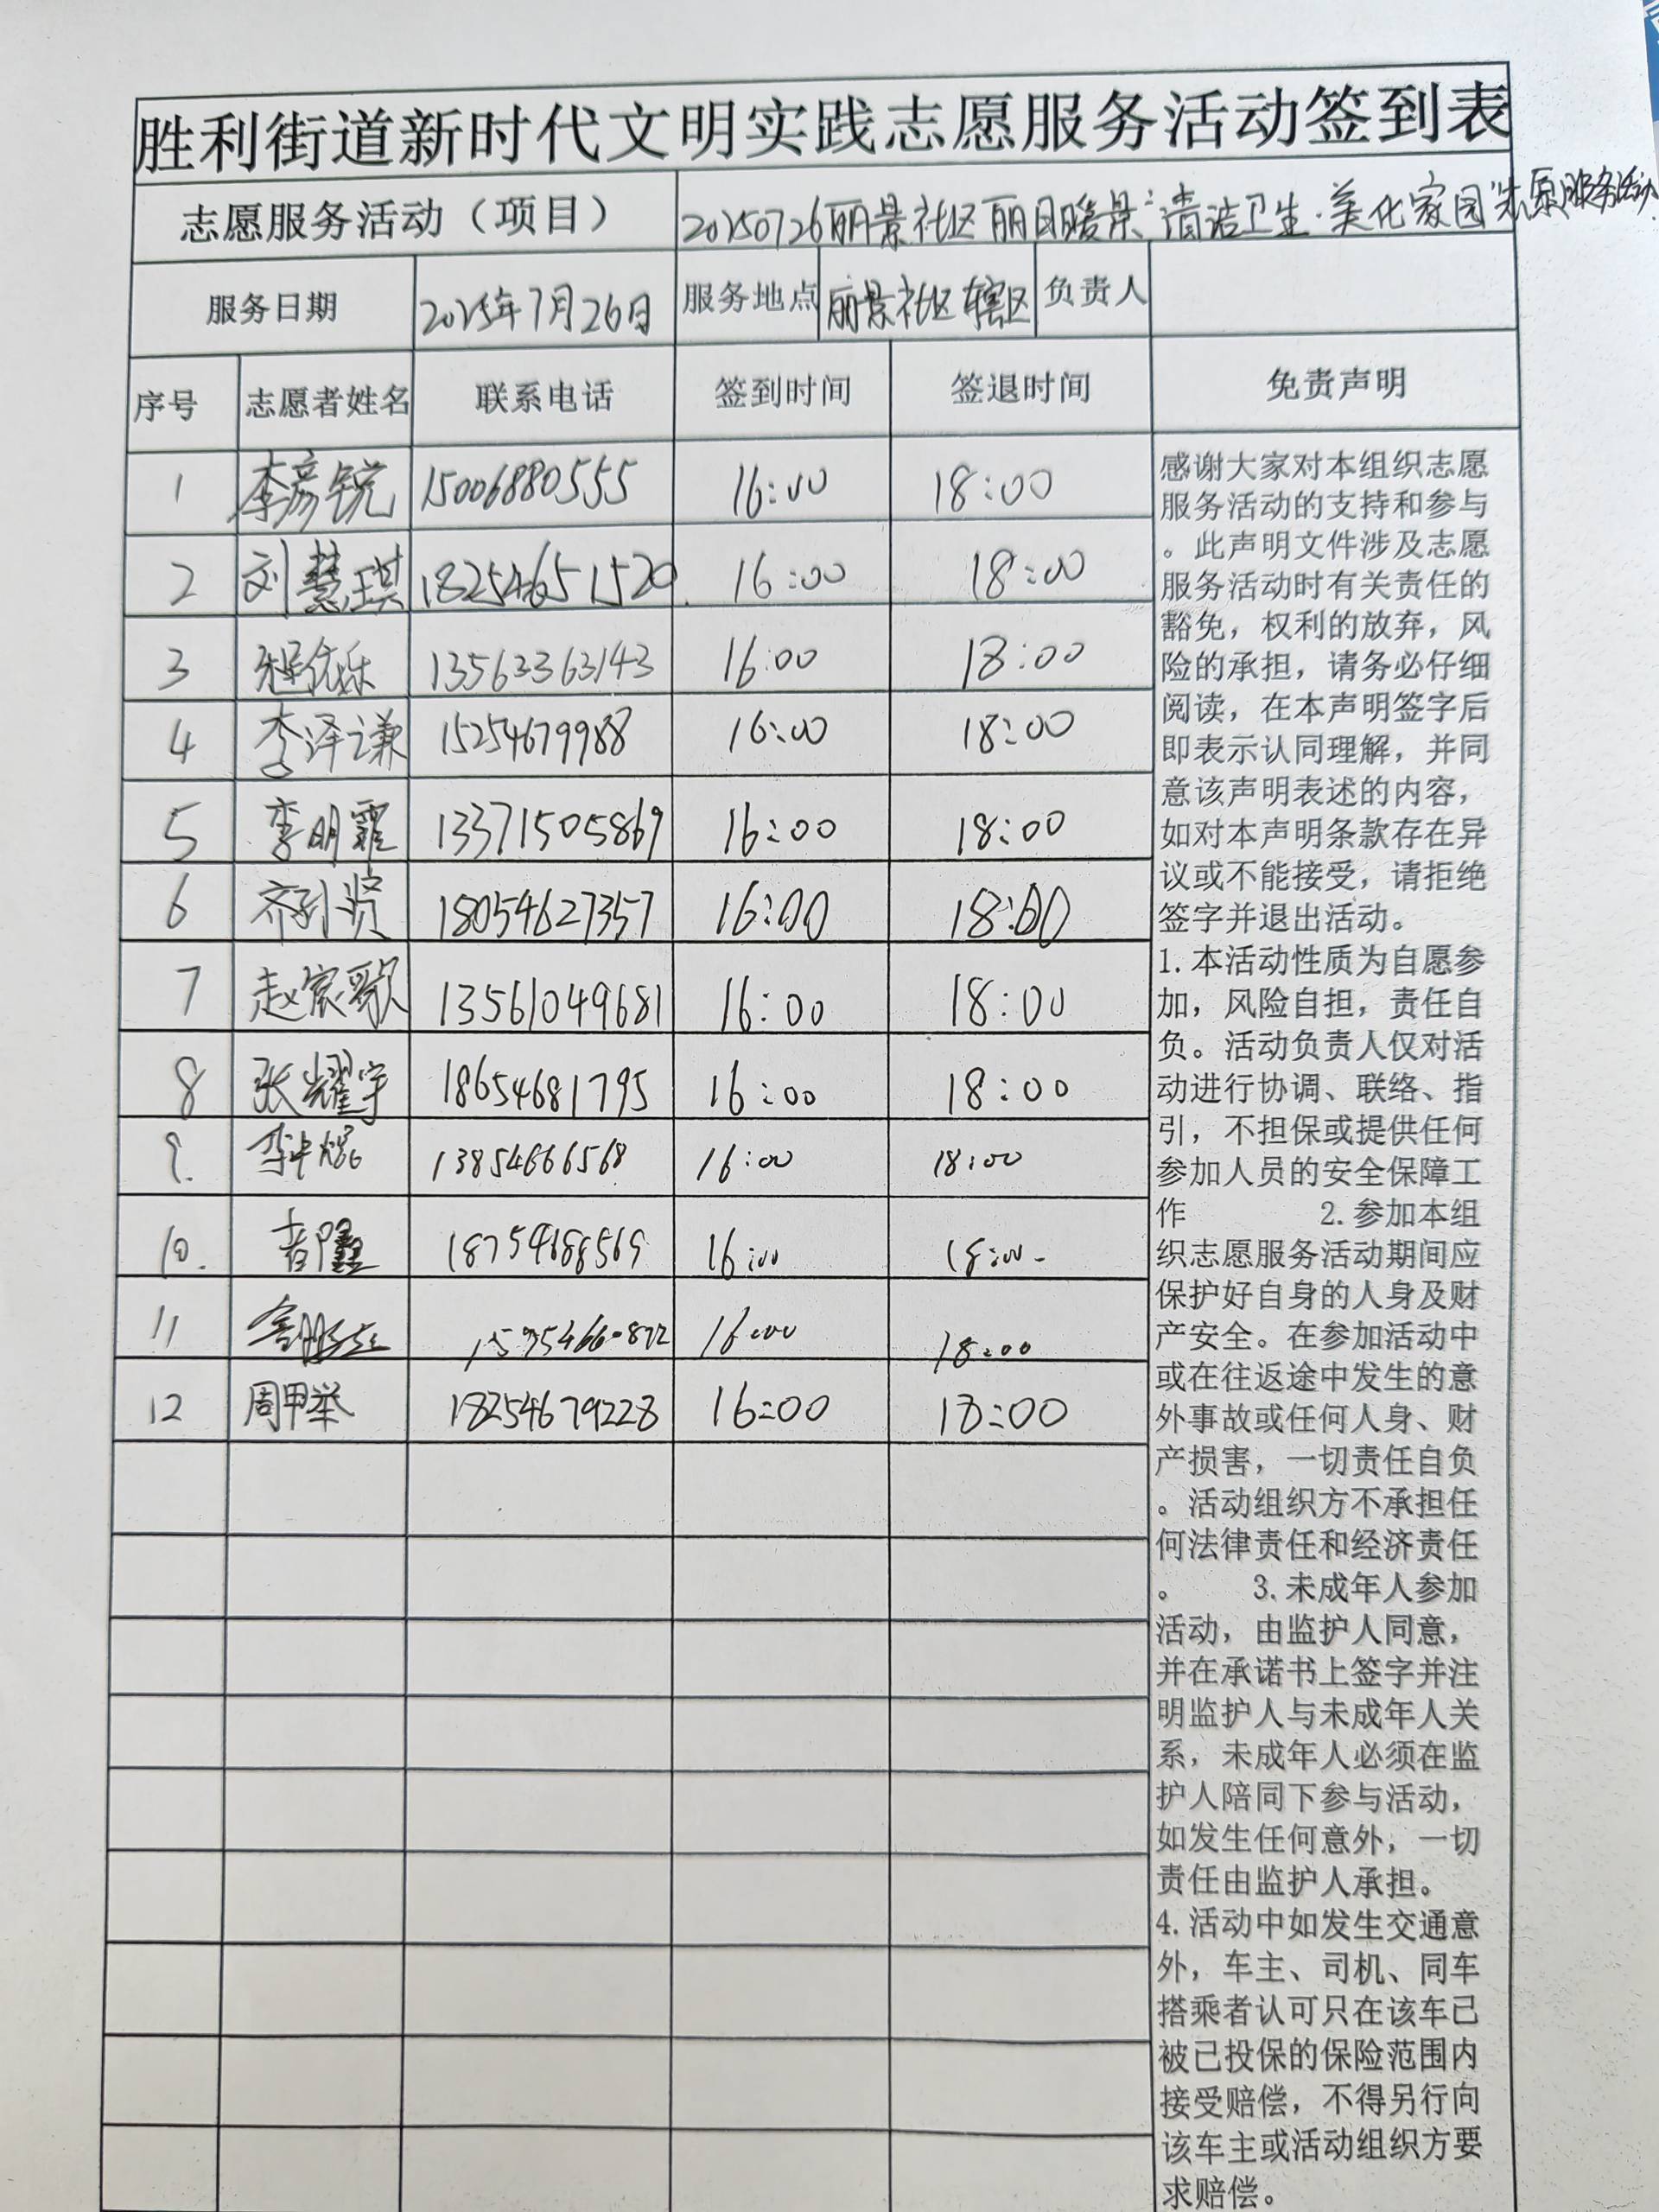 胜利街道新时代文明实践志愿服务活动签到表
志愿服务活动（项目） 20250726丽景社区丽日暖景“清洁卫生·美化家园”志愿服务活动
服务日期 2025年7月26日 服务地点 丽景社区辖区 负责人
序号 志愿者姓名 联系电话 签到时间 签退时间 免责声明
1 李彦锐 15006880555 16:00 18:00
2 刘慧琪 18254651520 16:00 18:00
3 13563363143 16:00 18:00
4 李泽谦 15254679988 16:00 18:00
5 李明霏 13371505869 16:00 18:00
6 18054627357 16:00 18:00
7 赵宸歌 13561049681 16:00 18:00
8 张耀宇 18654681795 16:00 18:00
9. 13854666568 16:00 18:00
10. 18754688569 16:00 18:00
11 16:00 18:00
12 周甲举 18254679228 16:00 18:00
感谢大家对本组织志愿
服务活动的支持和参与
。此声明文件涉及志愿
服务活动时有关责任的
豁免，权利的放弃，风
险的承担，请务必仔细
阅读，在本声明签字后
即表示认同理解，并同
意该声明表述的内容，
如对本声明条款存在异
议或不能接受，请拒绝
签字并退出活动。
1.本活动性质为自愿参
加，风险自担，责任自
负。活动负责人仅对活
动进行协调、联络、指
引，不担保或提供任何
参加人员的安全保障工
作 2.参加本组
织志愿服务活动期间应
保护好自身的人身及财
产安全。在参加活动中
或在往返途中发生的意
外事故或任何人身、财
产损害，一切责任自负
。活动组织方不承担任
何法律责任和经济责任
。 3.未成年人参加
活动，由监护人同意，
并在承诺书上签字并注
明监护人与未成年人关
系，未成年人必须在监
护人陪同下参与活动，
如发生任何意外，一切
责任由监护人承担。
4.活动中如发生交通意
外，车主、司机、同车
搭乘者认可只在该车已
被已投保的保险范围内
接受赔偿，不得另行向
该车主或活动组织方要
求赔偿。